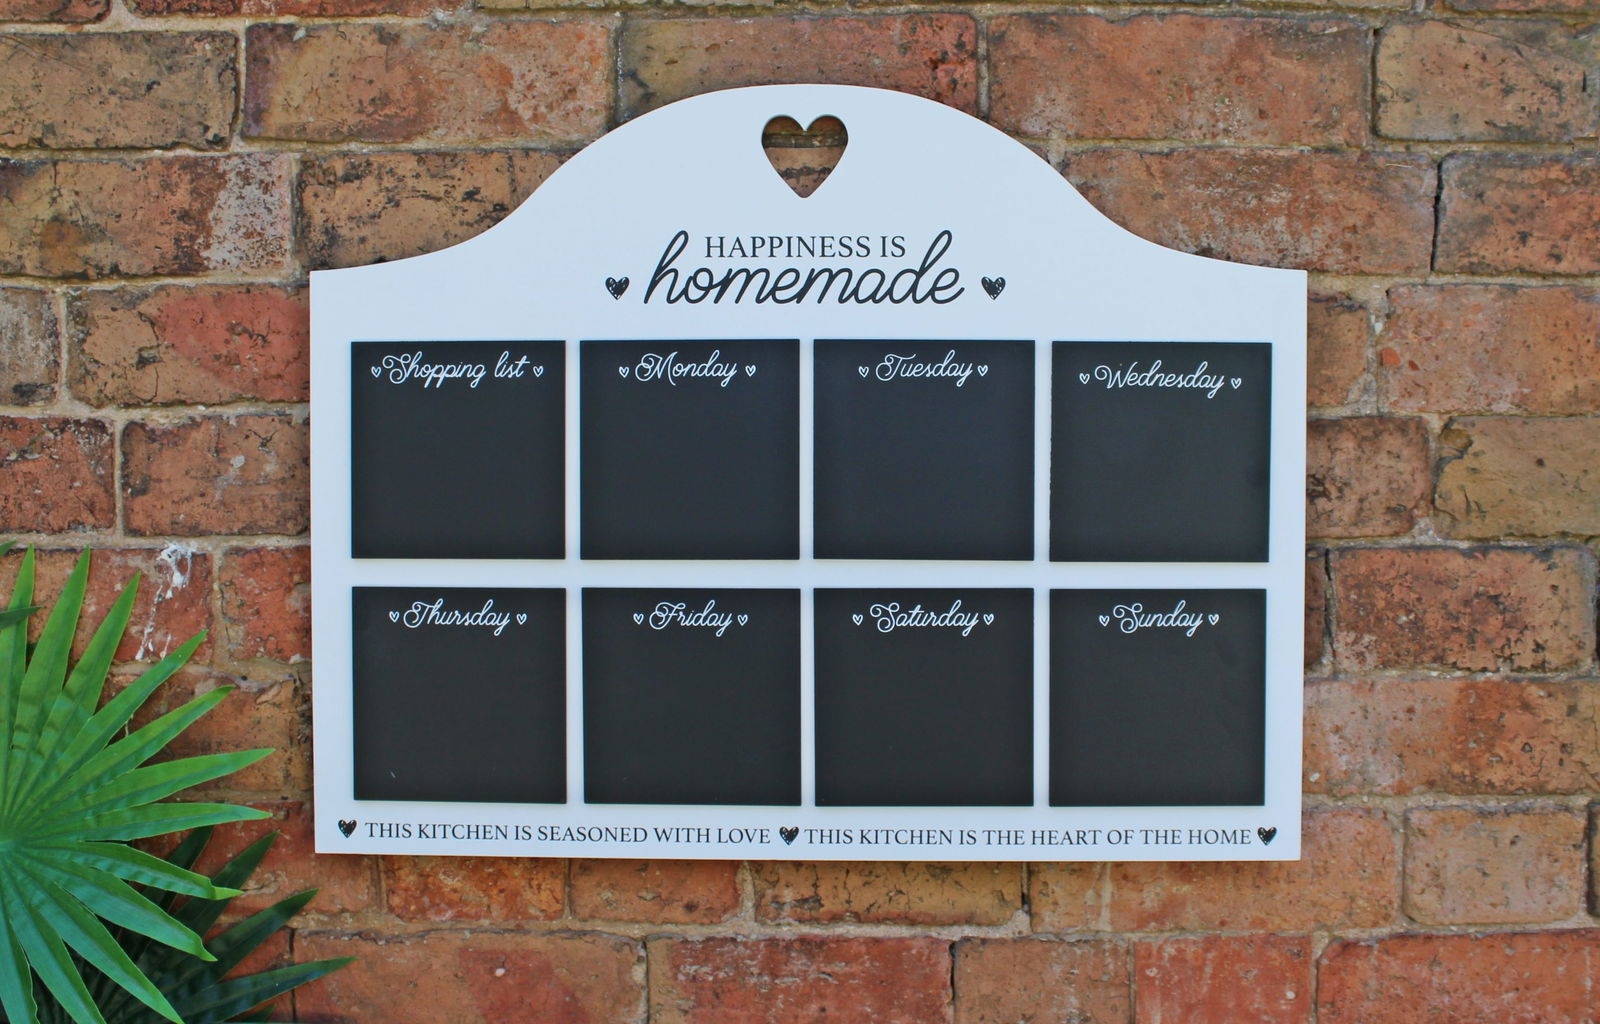 HAPPINESS IS
homemade
Shopping list
Monday
Tuesday
Wednesday
Thursday
Friday
Saturday
Sunday
THIS KITCHEN IS SEASONED WITH LOVE THIS KITCHEN IS THE HEART OF THE HOME